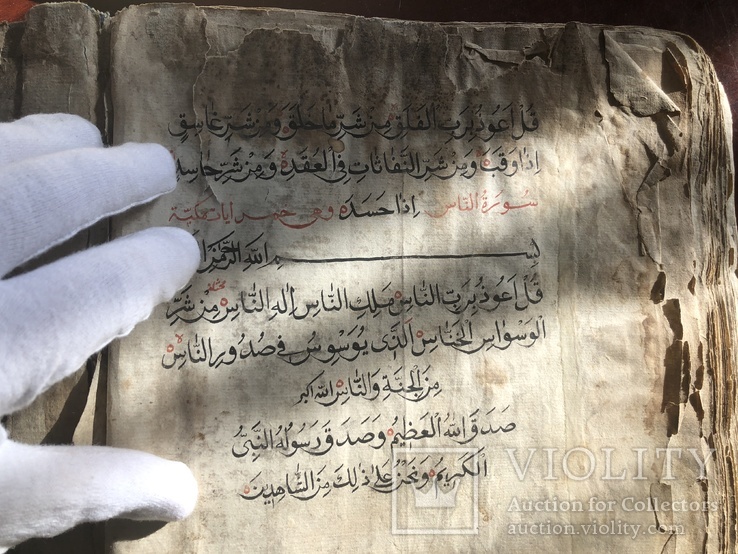 قُلْ اَعُوذُ بِرَبِّ الْفَلَقِ مِنْ شَرِّ مَا خَلَقَ وَمِنْ شَرِّ غَاسِقٍ
اِذَا وَقَبَ وَمِنْ شَرِّ النَّفَّاثَاتِ فِي الْعُقَدِ وَمِنْ شَرِّ حَاسِدٍ
سُورَةُ النَّاسِ اِذَا حَسَدَ وهى خمس ايات مكية
بِسْمِ اللهِ الرَّحْمٰنِ
قُلْ اَعُوذُ بِرَبِّ النَّاسِ مَلِكِ النَّاسِ اِلٰهِ النَّاسِ مِنْ شَرِّ
الْوَسْوَاسِ الْخَنَّاسِ الَّذِي يُوَسْوِسُ فِي صُدُورِ النَّاسِ
مِنَ الْجِنَّةِ وَالنَّاسِ اللهُ اكبر
صَدَقَ اللهُ الْعَظِيمُ وَصَدَقَ رَسُولُهُ النَّبِيُّ
الْكَرِيمُ وَنَحْنُ عَلَى ذٰلِكَ مِنَ الشَّاهِدِينَ
VIOLITY
Auction for Collectors
auction.violity.com